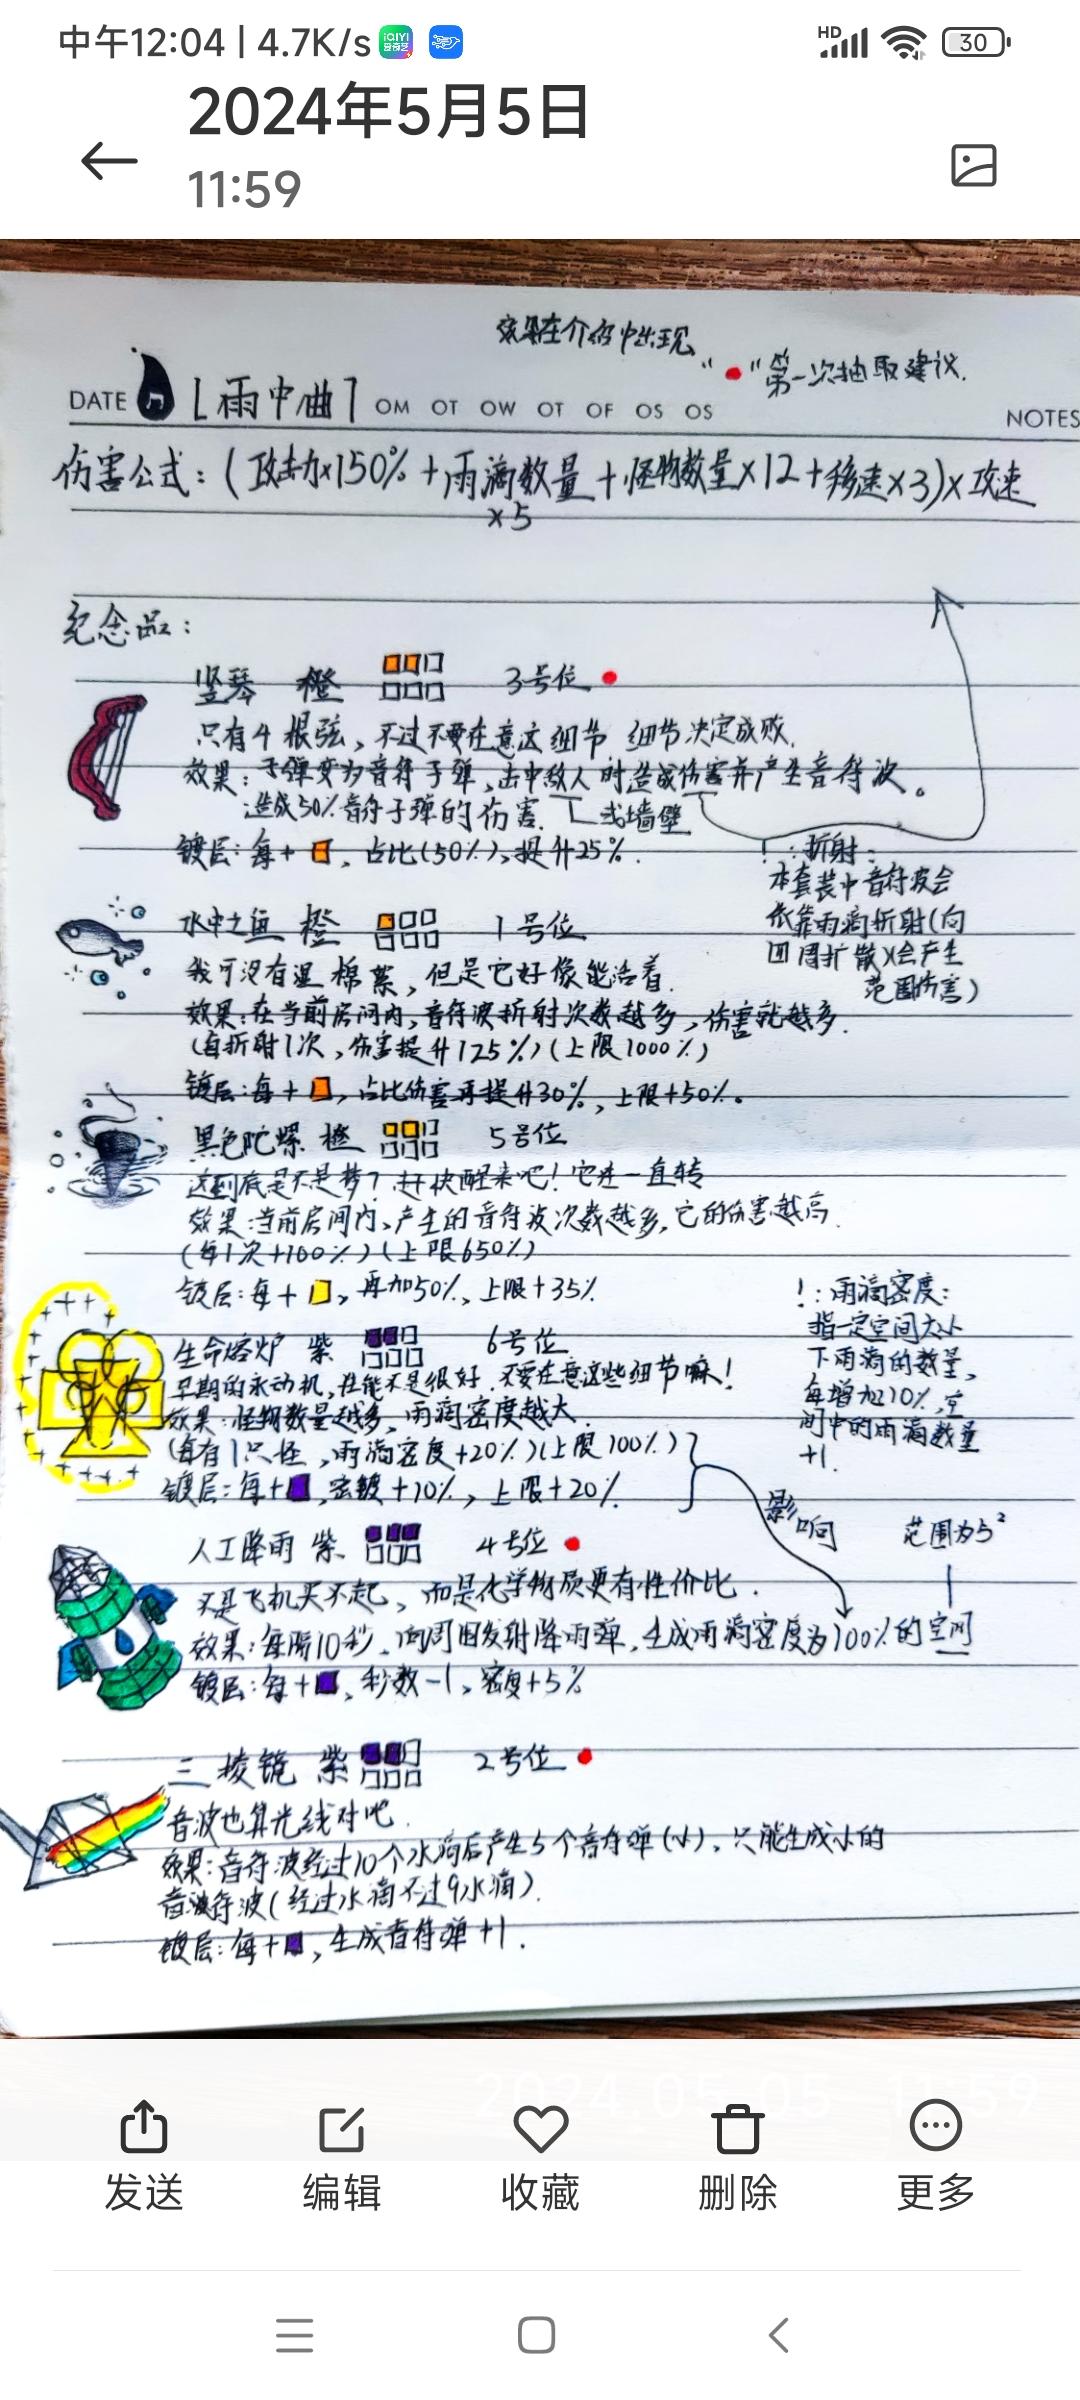 中午12:04 | 4.7K/s
HD
30
2024年5月5日
11:59
效果在介绍中出现
"●"第一次抽取建议.
DATE [雨中曲] OM OT OW OT OF OS OS
NOTES
伤害公式:(攻击力×150% + 雨滴数量 + 怪物数量×12 + 移速×3)× 攻速
×5
纪念品:
竖琴 橙 3号位
只有4根弦, 不过不要在意这细节 细节决定成败.
效果: 子弹变为音符子弹, 击中敌人时造成伤害并产生音符波。
造成50%音符子弹的伤害. 或墙壁
镀层:每+ , 占比(50%), 提升25%.
!:折射:
本套装中音符波会
依靠雨滴折射(向
四周扩散)(会产生
范围伤害)
水中之鱼 橙 1号位
我可没有湿棉絮, 但是它好像能活着.
效果:在当前房间内, 音符波折射次数越多, 伤害就越多.
(每折射1次, 伤害提升125%)(上限1000%)
镀层:每+ , 占比伤害再提升30%, 上限+50%。
黑色陀螺 橙 5号位
这到底是不是梦?赶快醒来吧!它还一直转
效果:当前房间内, 产生的音符波次数越多, 它的伤害越高.
(每1次+100%)(上限650%)
镀层:每+ , 再加50%, 上限+35%
!:雨滴密度:
指一定空间大小
下雨滴的数量,
每增加10%, 空
间中的雨滴数量
+1.
生命熔炉 紫 6号位
早期的永动机, 性能不是很好. 不要在意这些细节嘛!
效果:怪物数量越多, 雨滴密度越大.
(每有1只怪, 雨滴密度+20%)(上限100%)
镀层:每+ , 密镀+10%, 上限+20%
影响
范围为5²
人工降雨 紫 4号位
不是飞机买不起, 而是化学物质更有性价比.
效果:每隔10秒, 向周围发射降雨弹, 生成雨滴密度为100%的空间
镀层:每+ , 秒数-1, 密度+5%
三棱镜 紫 2号位
音波也算光线对吧.
效果:音符波经过10个水滴后产生5个音符弹(小), 只能生成小的
音波符波(经过水滴不过9水滴).
镀层:每+ , 生成音符弹+1.
2024.05.05 11:59
发送
编辑
收藏
删除
更多